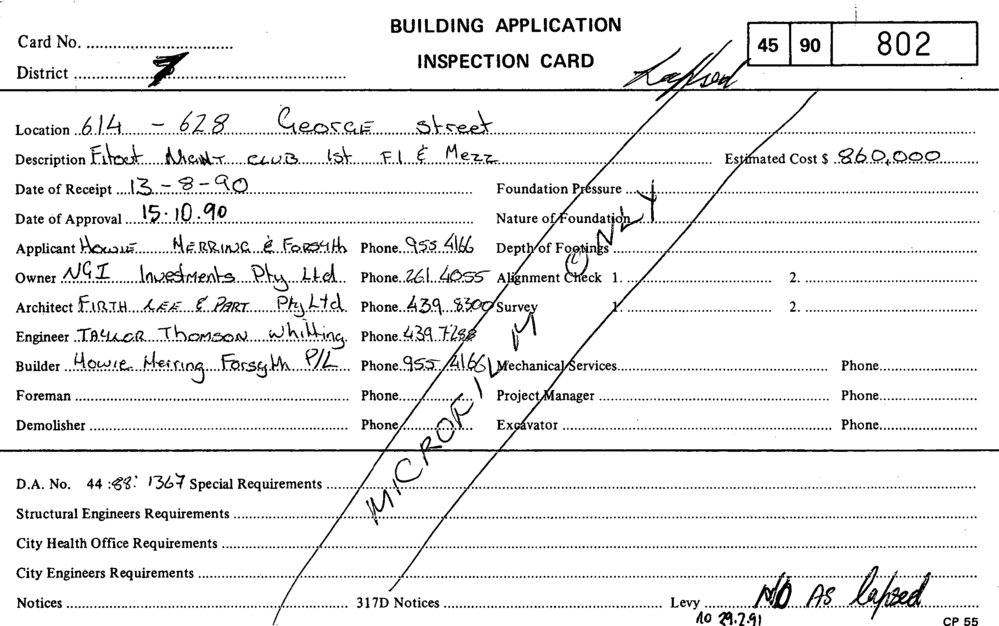 BUILDING APPLICATION
INSPECTION CARD
Card No.
District 7
Lapsed
45 90 802
Location 614 - 628 George Street
Description Fitout Night Club 1st Fl & Mezz Estimated Cost $ 860,000
Date of Receipt 13-8-90 Foundation Pressure
Date of Approval 15.10.90 Nature of Foundation
Applicant Howie Herring & Forsyth Phone 955 4166 Depth of Footings
Owner NGI Investments Pty Ltd Phone 261 4055 Alignment Check 1. 2.
Architect Firth Lee & Part Pty Ltd Phone 439 8300 Survey 1. 2.
Engineer Taylor Thomson Whitting Phone 439 7288
Builder Howie Herring Forsyth P/L Phone 955 4166 Mechanical Services Phone
Foreman Phone Project Manager Phone
Demolisher Phone Excavator Phone
MICROFILM ONLY
D.A. No. 44:88:1367 Special Requirements
Structural Engineers Requirements
City Health Office Requirements
City Engineers Requirements
Notices 317D Notices Levy NO AS lapsed
29.2.91
CP 55